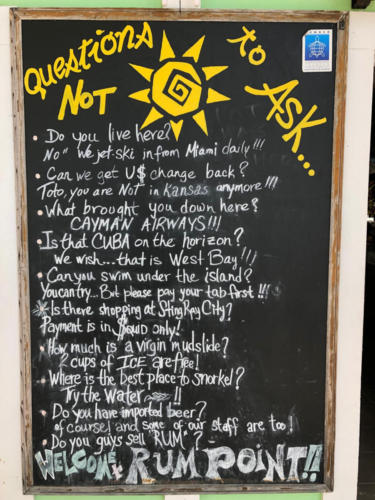 Questions to
Not Ask...
• Do you live here?
No" We jet-ski in from Miami daily!!!
• Can we get U$ change back?
Toto, you are Not in Kansas anymore!!!
• What brought you down here?
CAYMAN AIRWAYS!!!
• Is that CUBA on the horizon?
we wish... that is West Bay!!!
• Can you swim under the island?
You can try... But please pay your tab first!!!
• Is there shopping at Sting Ray City?
Payment is in $quid only!
• How much is a virgin mudslide?
2 cups of ICE are free!
• Where is the best place to snorkel?
Try the Water !!
• Do you have imported beer?
of course! and some of our staff are too!
• Do you guys sell RUM"?
WELCOME to RUM POINT!!